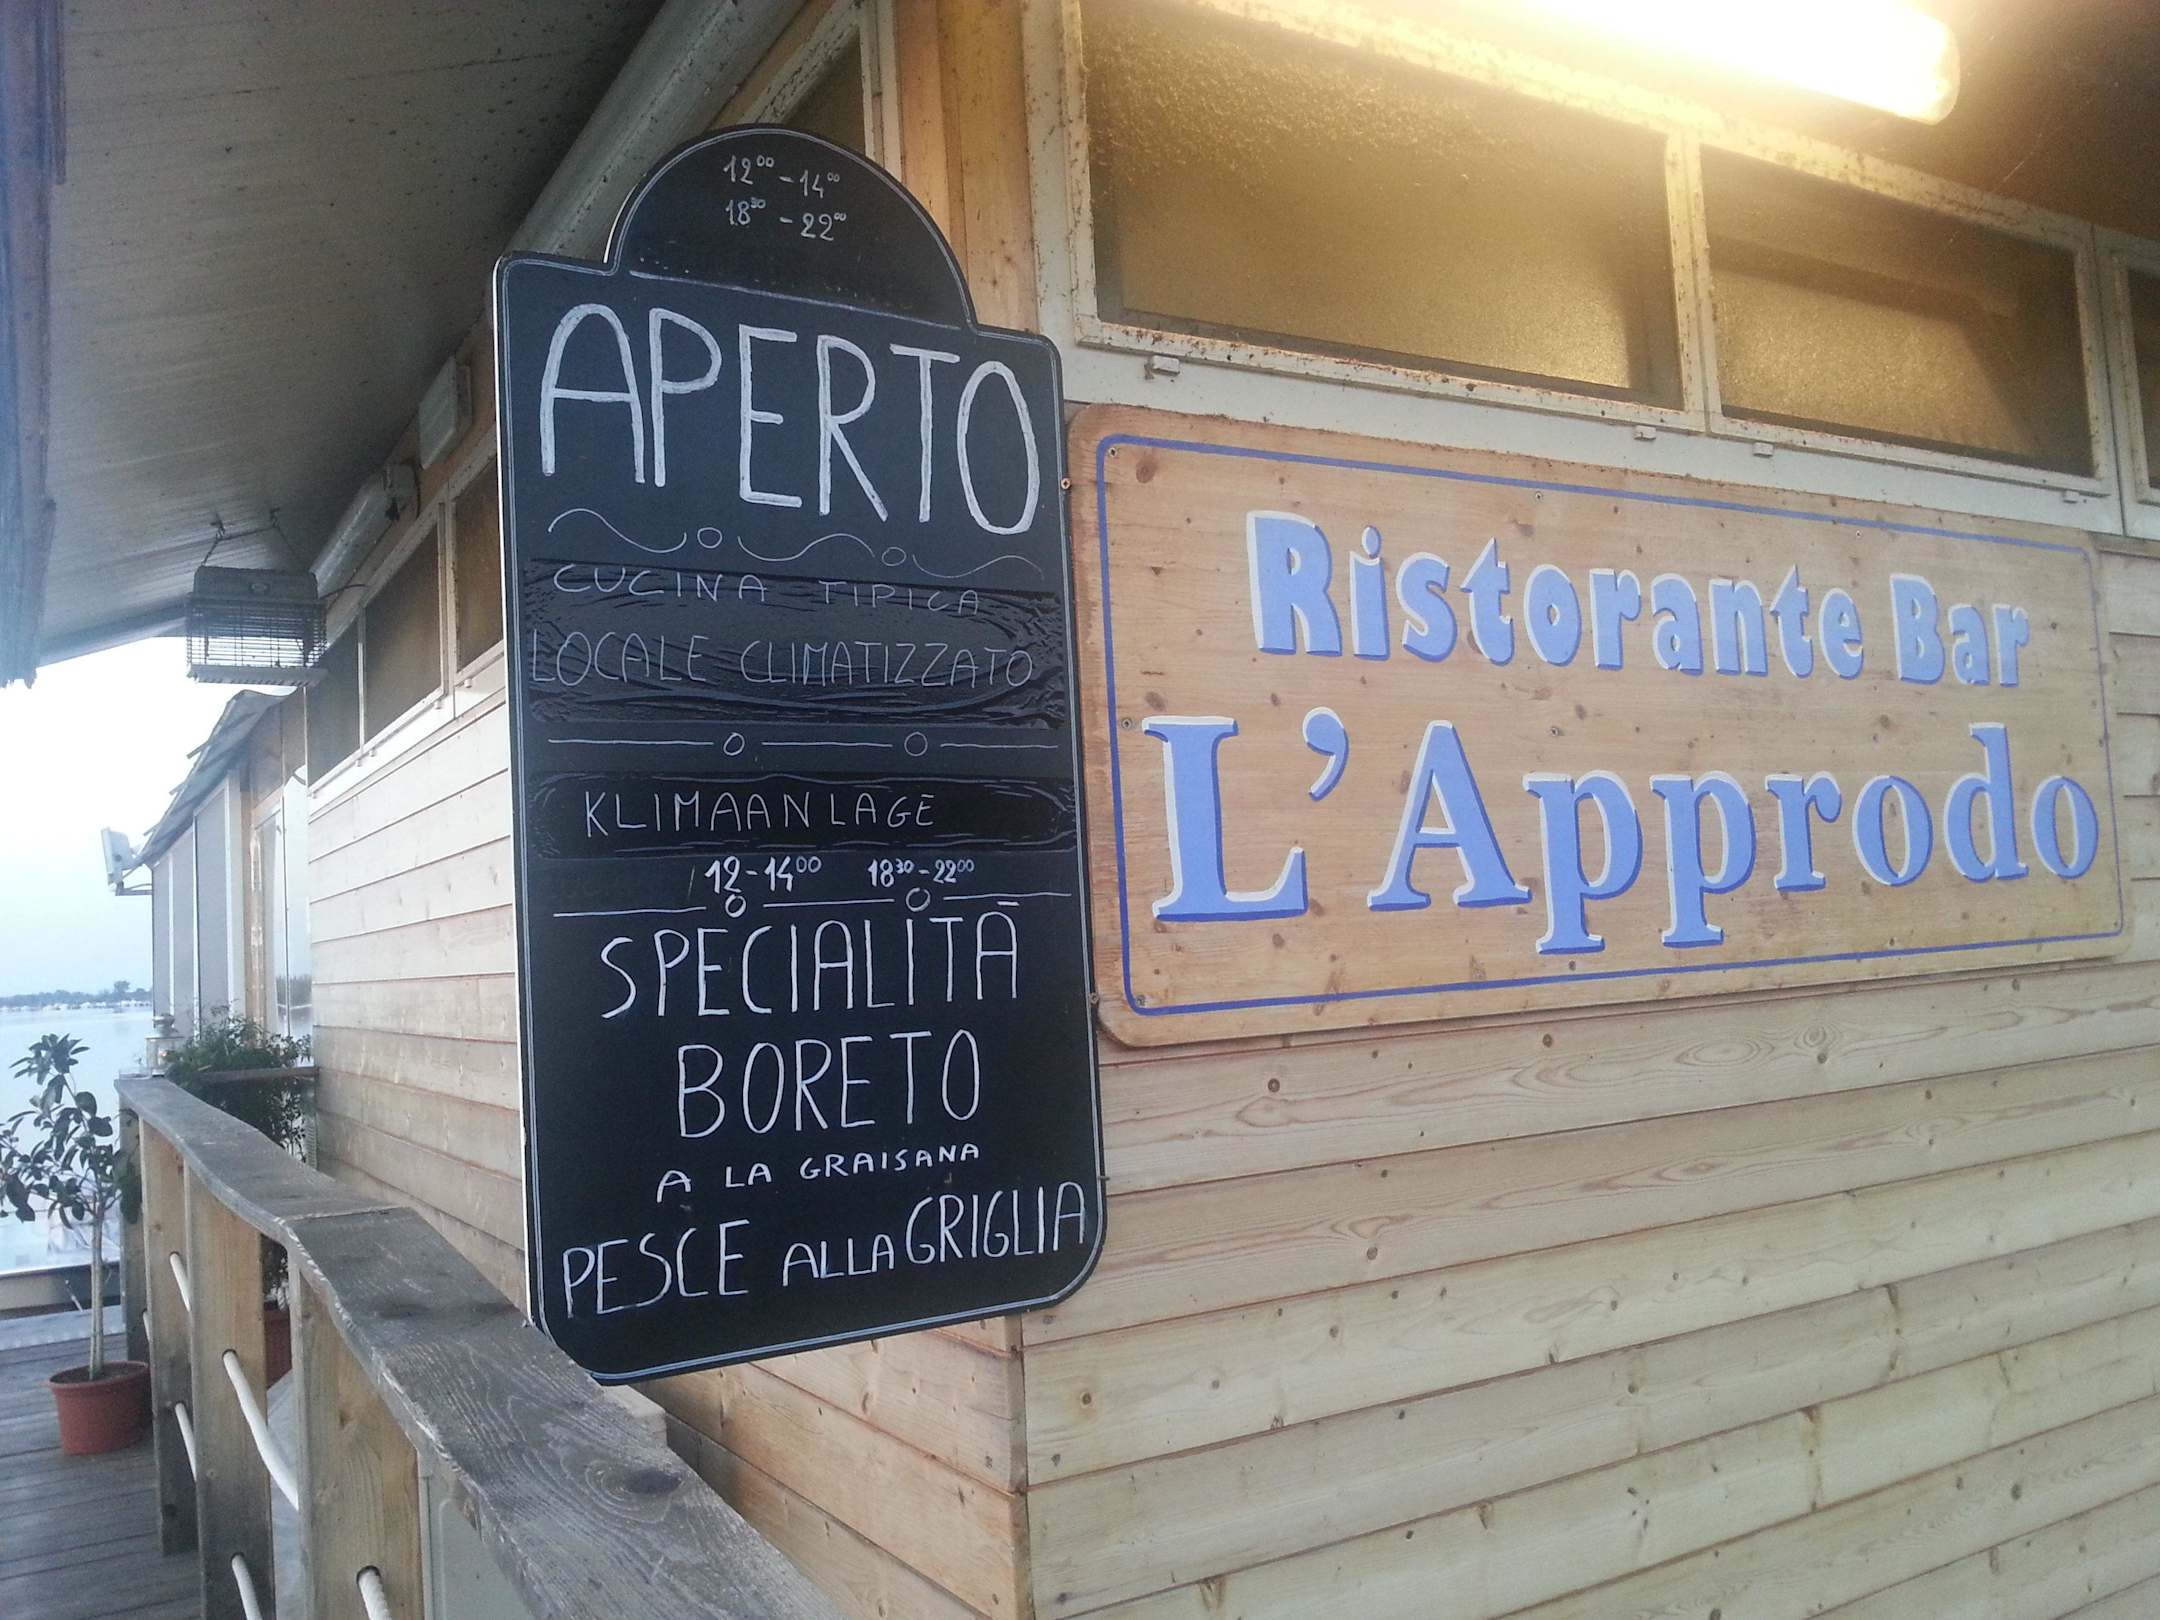 12⁰⁰ - 14⁰⁰
18³⁰ - 22⁰⁰
APERTO
CUCINA TIPICA
LOCALE CLIMATIZZATO
KLIMAANLAGE
12-14⁰⁰ 18³⁰-22⁰⁰
SPECIALITÀ
BORETO
A LA GRAISANA
PESCE ALLA GRIGLIA
Ristorante Bar
L'Approdo